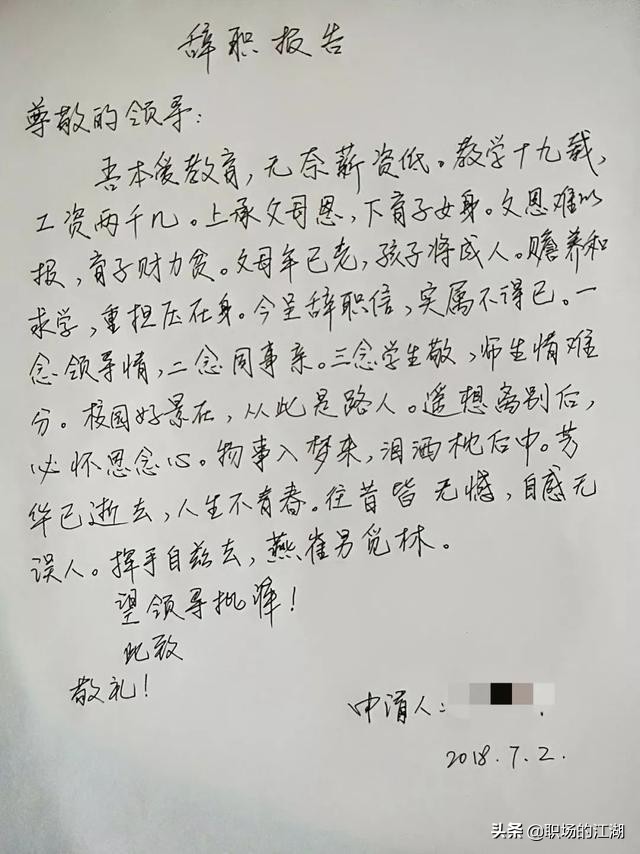 辞职报告
尊敬的领导:
吾本爱教育,无奈薪资低。教学十九载,
工资两千几。上承父母恩,下育子女身。父恩难以
报,育子财力贫。父母年已老,孩子将成人。赡养和
求学,重担压在身。今呈辞职信,实属不得已。一
念领导情,二念同事亲。三念学生敬,师生情难
分。校园好景在,从此是路人。遥想离别后,
必怀思念心。物事入梦来,泪洒枕巾中。芳
华已逝去,人生不青春。往昔皆无憾,自感无
误人。挥手自兹去,燕雀另觅林。
望领导批准!
此致
敬礼!
申请人:
2018.7.2.
头条 @职场的江湖